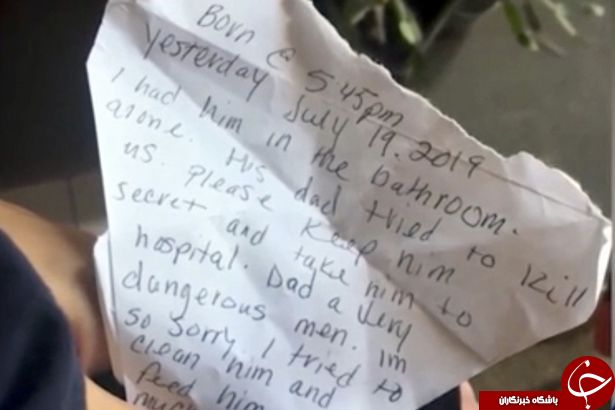 Born @ 545pm
yesterday July 19. 2019
I had him in the bathroom.
alone. His dad tried to kill
us. please keep him
secret and take him to
hospital. Dad a very
dangerous men. Im
so sorry. I tried to
clean him and
feed him
باشگاه خبرنگاران